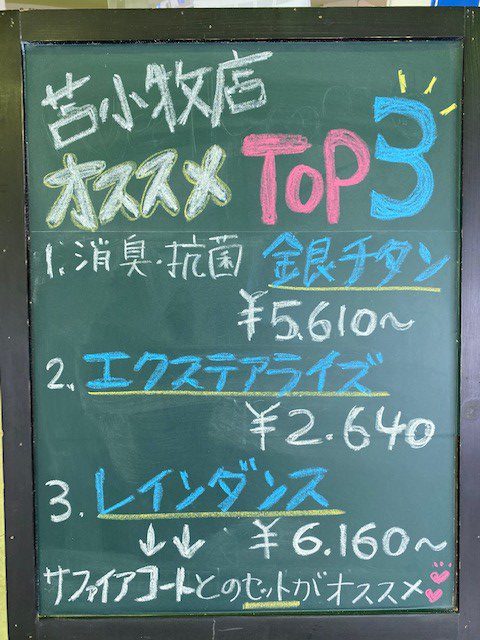 苫小牧店
オススメ TOP3
1. 消臭・抗菌 銀チタン
¥5.610～
2. エクステアライズ
¥2.640
3. レインダンス
↓↓ ¥6.160～
サファイアコートとのセットがオススメ